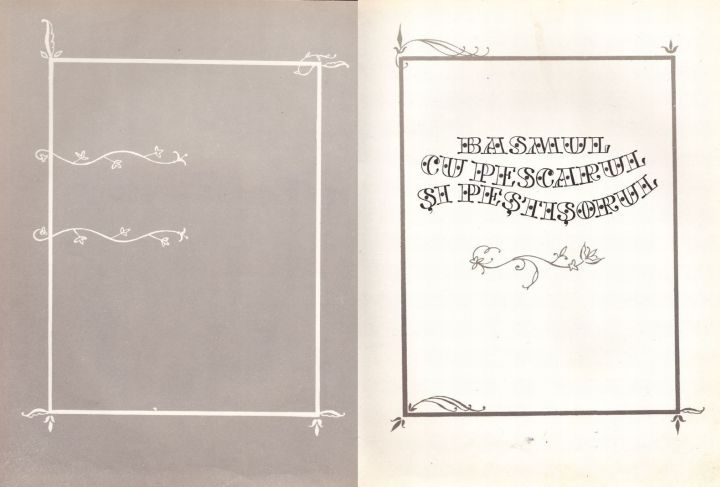 BASMUL
CU PESCARUL
ȘI PEȘTIȘORUL